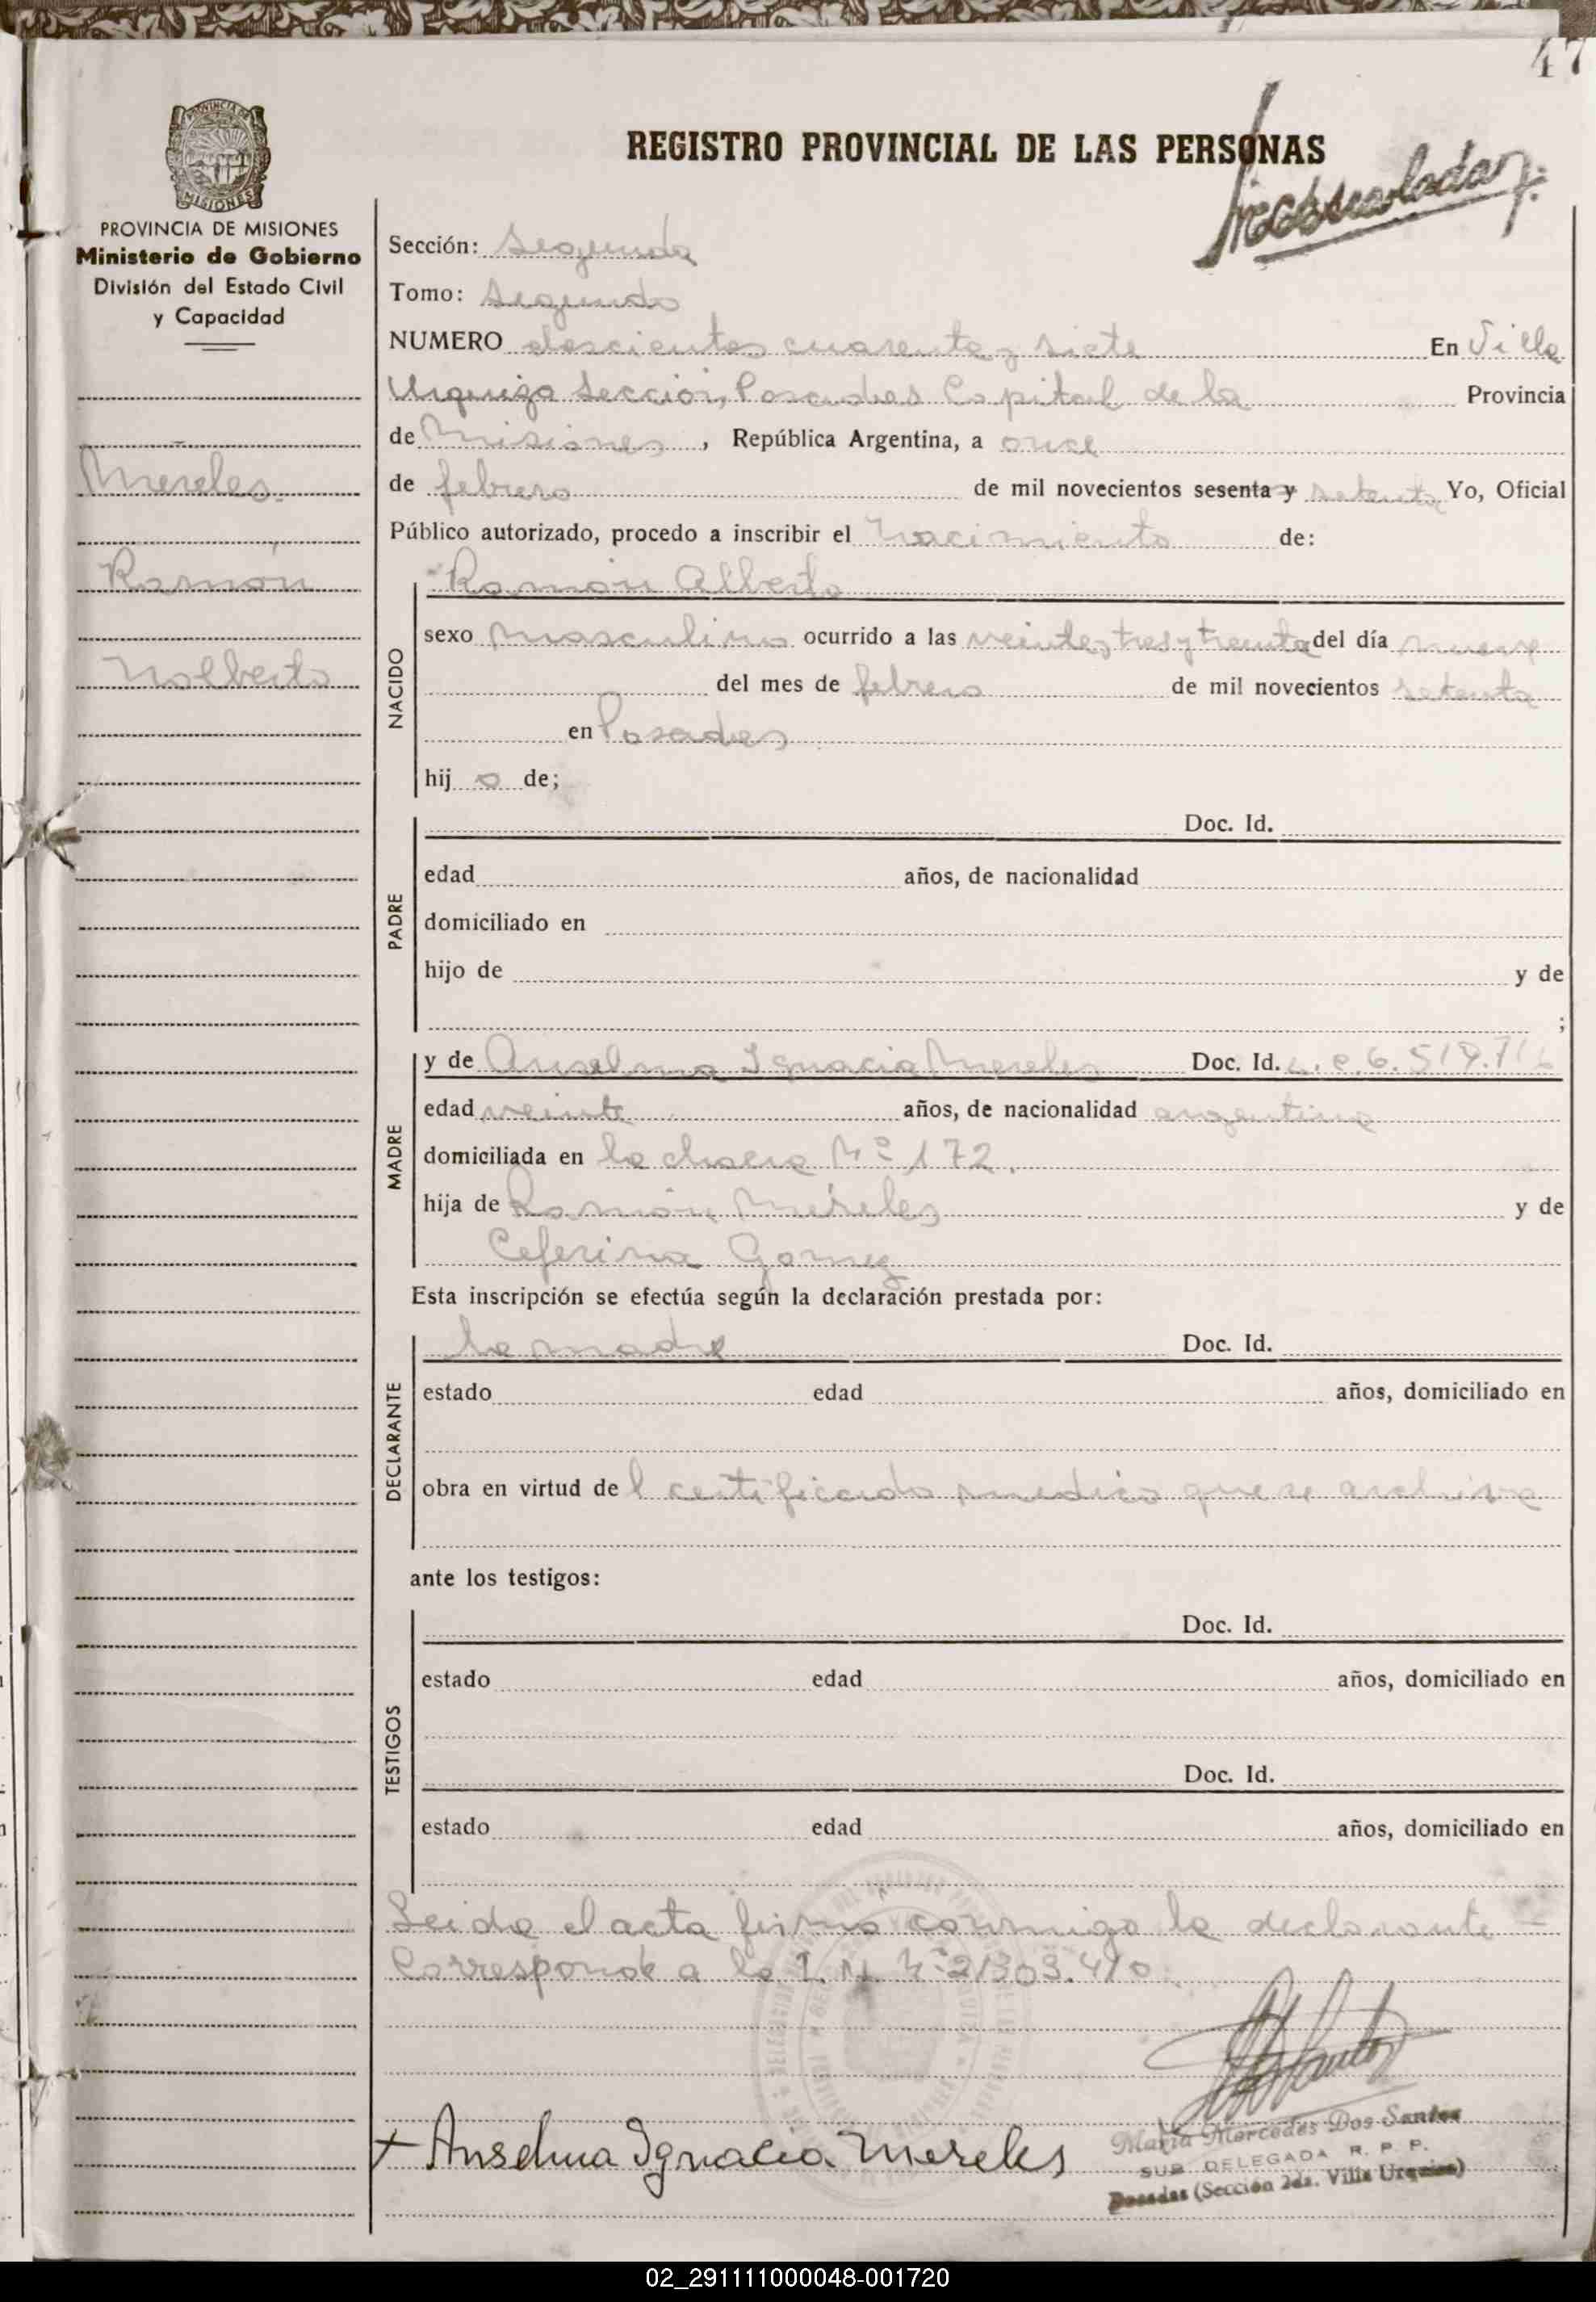 47
REGISTRO PROVINCIAL DE LAS PERSONAS
PROVINCIA DE MISIONES
Ministerio de Gobierno
División del Estado Civil
y Capacidad
Mereles
Ramón
Nolberto
Sección: Segunda
Tomo: Segundo
NUMERO doscientos cuarenta y siete En Villa
Urquiza Sección, Posadas Capital de la Provincia
de Misiones, República Argentina, a once
de febrero de mil novecientos sesenta y setenta Yo, Oficial
Público autorizado, procedo a inscribir el nacimiento de:
NACIDO
Ramón Alberto
sexo masculino ocurrido a las veinte y tres y treinta del día nueve
del mes de febrero de mil novecientos setenta
en Posadas
hij o de;
PADRE
Doc. Id.
edad años, de nacionalidad
domiciliado en
hijo de y de
;
MADRE
y de Anselma Ignacia Mereles Doc. Id. L.C. 6.519.716
edad veinte años, de nacionalidad argentina
domiciliada en la chacra Nº 172.
hija de Ramón Mereles y de
Ceferina Gomez
Esta inscripción se efectúa según la declaración prestada por:
DECLARANTE
la madre Doc. Id.
estado edad años, domiciliado en
obra en virtud de l certificado medico que se archiva
ante los testigos:
TESTIGOS
Doc. Id.
estado edad años, domiciliado en
Doc. Id.
estado edad años, domiciliado en
Leida el acta firma conmigo la declarante -
Corresponde a la I. N. Nº 21303.410
+ Anselma Ignacia Mereles
Maria Mercedes Dos Santos
SUB DELEGADA R. P. P.
Posadas (Sección 2da. Villa Urquiza)
02_291111000048-001720